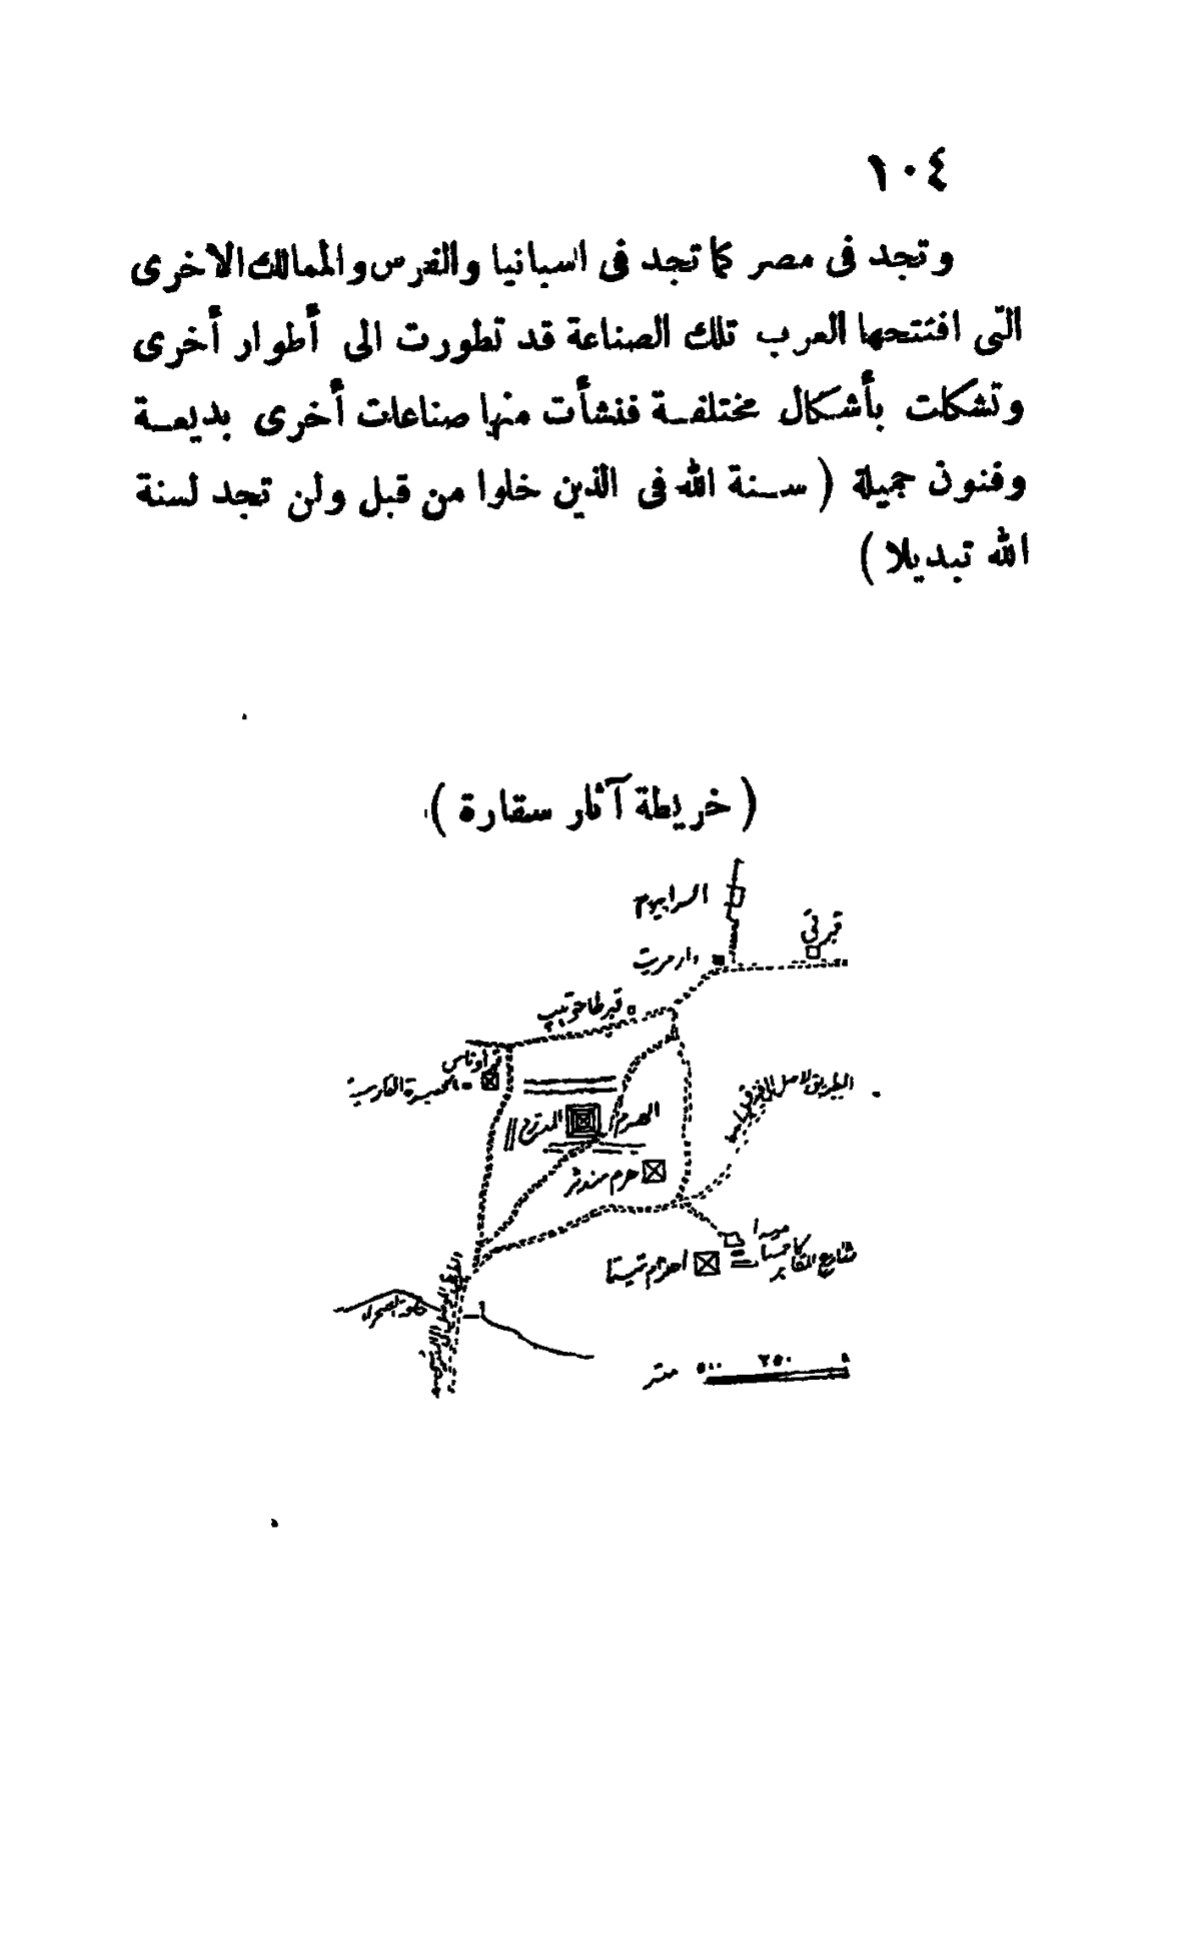 ١٠٤
وتجد فى مصر كما تجد فى اسبانيا والفرس والممالك الاخرى
التى افتتحها العرب تلك الصناعة قد تطورت الى أطوار أخرى
وتشكلت بأشكال مختلفة فنشأت منها صناعات أخرى بديعة
وفنون جميلة ( سنة الله فى الذين خلوا من قبل ولن تجد لسنة
الله تبديلا )
( خريطة آثار سقارة )
السرابيوم
قبر تى
دار مريت
قبر طاحوتيب
أوناس
الفارسية
الهرم
المدرج
هرم مندثر
ميرا
كاجمنا
شارع المقابر
اهرام تيتا
٠ ٢٥٠ ٥٠٠ متر